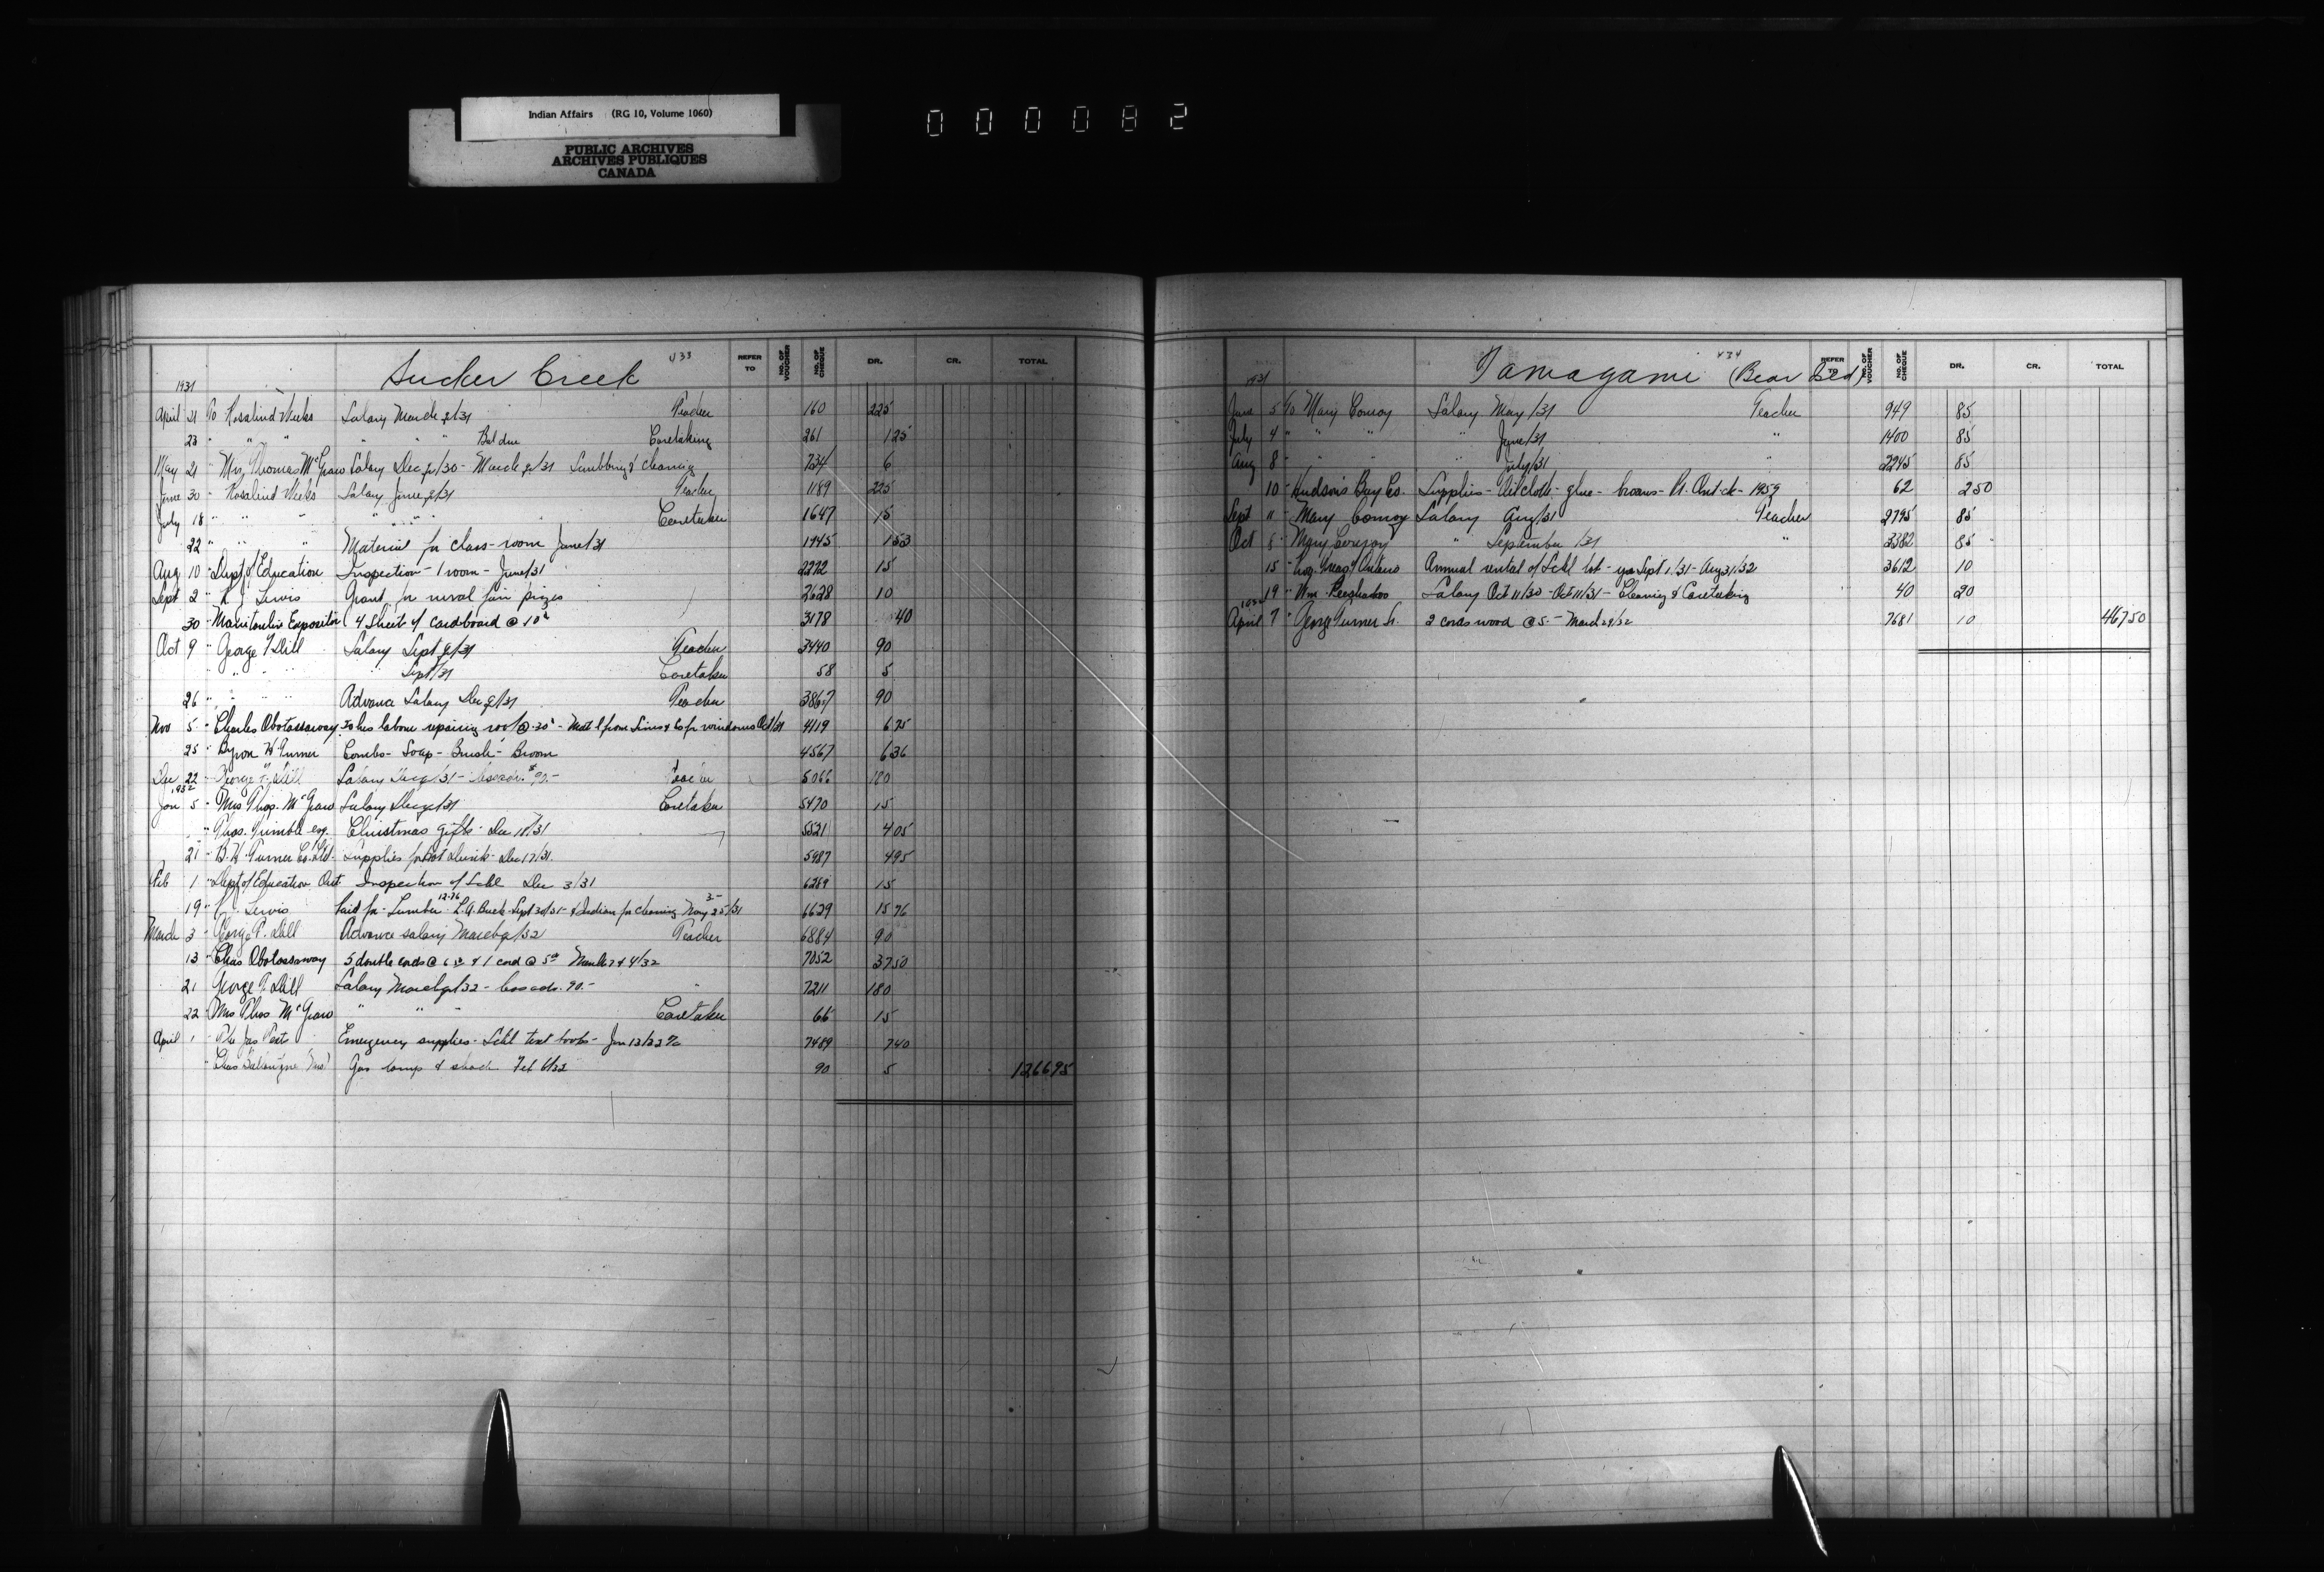 Indian Affairs (RG 10, Volume 1060)
PUBLIC ARCHIVES
ARCHIVES PUBLIQUES
CANADA
000082
Sucker Creek 433
REFER TO NO. OF VOUCHER NO. OF CHEQUE DR. CR. TOTAL
1931
April 21 To Rosalind Weeks Salary March qr/31 Teacher 160 225
23 " " " " " " Bal due Caretaking 261 1 25
May 21 " Mrs Thomas McGraw Salary Dec qr/30 - March qr/31 Scrubbing & cleaning 734 6
June 30 " Rosalind Weeks Salary June qr/31 Teacher 1189 225
July 18 " " " " " " Caretaker 1647 15
22 " " " Material for class-room June/31 1745 1 53
Aug 10 " Dept of Education Inspection - 1 room - June/31 2272 15
Sept 2 " Lewis Grant for rural fair prizes 2628 10
30 - Manitoulin Expositor 4 sheets of cardboard @ 10¢ 3178 40
Oct 9 - George F Dill Salary Sept qr/31 Teacher 3440 90
" " " Sept/31 Caretaker 58 5
26 " " " " Advance Salary Dec qr/31 Teacher 3867 90
Nov 5 - Charles Obotassaway 2 hrs labour repairing roof @ - Mat'l from Sims & Co for windows Oct/31 4119 6 75
25 " Byron H Turner Combs - Soap - Brush - Broom 4567 6 36
Dec 22 - George Dill Salary Dec qr/31 - less adv. $90.- Teacher 5066 180
1932
Jan 5 - Mrs Thos. McGraw Salary Dec qr/31 Caretaker 5470 15
" Thos. Trimble esq. Christmas gifts - Dec 18/31 5521 4 05
21 - B. H. Turner Co. Ltd. Supplies for Dec 17/31. 5987 4 95
Feb 1 - Dept of Education Ont Inspection of Schl Dec 3/31 6289 15
19 " Lewis Paid for - Lumber 12.76 L. A. Buck - Sept 30/31 - & Indian for cleaning 3- Nov 25/31 6629 15 76
March 3 - George F. Dill Advance salary March qr/32 Teacher 6884 90
13 " Chas Obotassaway 5 double cords @ 6.50 & 1 cord @ 5.00 March 2 & 4/32 7052 37 50
21 George F. Dill Salary March qr/32 - less adv. 90.- " 7211 180
22 - Mrs Thos McGraw " " " Caretaker 66 15
April 1 - The Jas Texts Emergency supplies - Schl text books - Jan 13/32 7489 7 40
- Chas Gas lamp & shade Feb 6/32 90 5 1266 95
Tamagami (Bear Isld) 434
REFER TO NO. OF VOUCHER NO. OF CHEQUE DR. CR. TOTAL
1931
June 5 To Mary Conroy Salary May/31 Teacher 949 85
July 4 " " " " June/31 " 1400 85
Aug 8 " " " " July/31 " 2245 85
10 - Hudson's Bay Co. Supplies - Oilcloth - glue - brooms - Pt. Ont ck - 1959 62 2 50
Sept 11 - Mary Conroy Salary Aug/31 Teacher 2795 85
Oct 8 - Mary Conroy " September/31 " 3382 85
15 - Ontario Annual rental of Schl lot - yr Sept 1/31 - Aug 31/32 3612 10
19 " Wm Peeshaboo Salary Oct 11/30 - Oct 11/31 - Cleaning & Caretaking 40 20
1932
April 7 - George Turner Sr. 2 cords wood @ 5.- March 29/32 7681 10 467 50